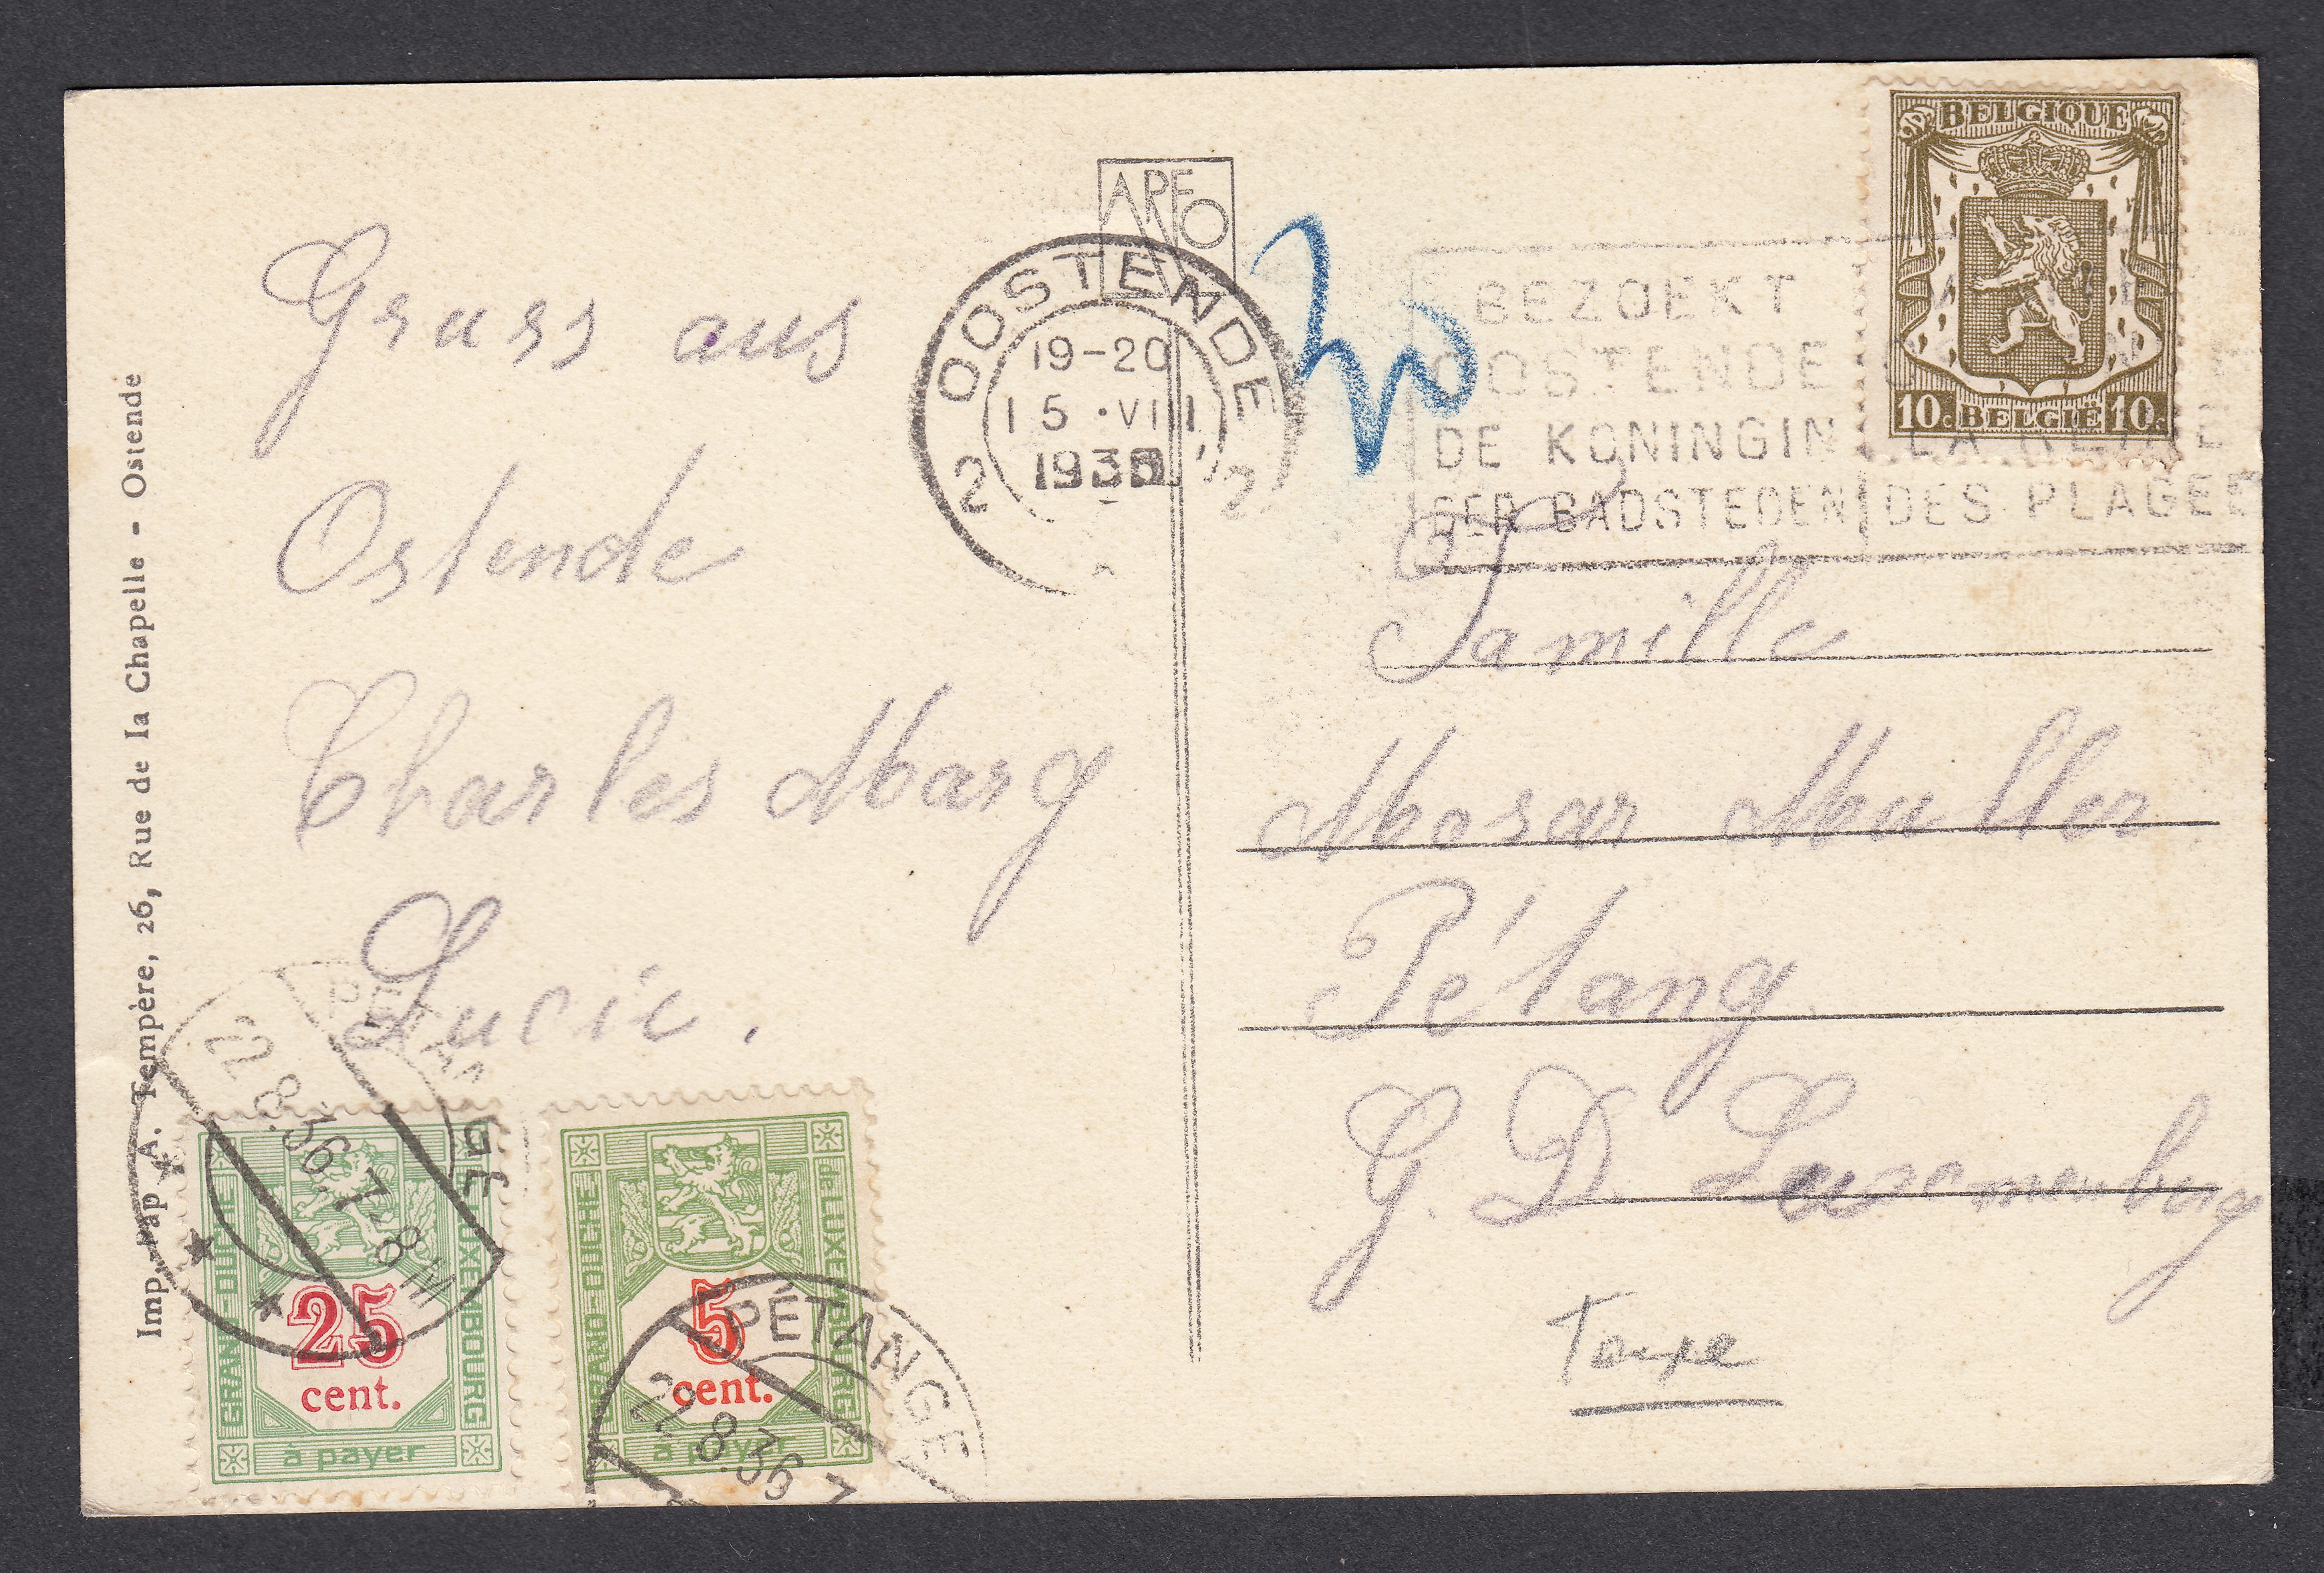 Gruss aus
Ostende
Charles Marg
Lucie.
Imp. Pap A. Tempère, 26, Rue de la Chapelle - Ostende
ARFO
2 OOSTENDE 2
19-20
15 · VIII
1936
BEZOEKT
OOSTENDE
DE KONINGIN LA REINE
DER BADSTEDEN DES PLAGES
BELGIQUE
10c BELGIË 10c
Famille
Mosar Muller
Pétang
G. D. Luxemburg
Taxe
GRAND-DUCHÉ de LUXEMBOURG
25
cent.
à payer
GRAND-DUCHÉ de LUXEMBOURG
5
cent.
à payer
PÉTANGE
22.8.36.7-8M
PÉTANGE
22.8.36 7